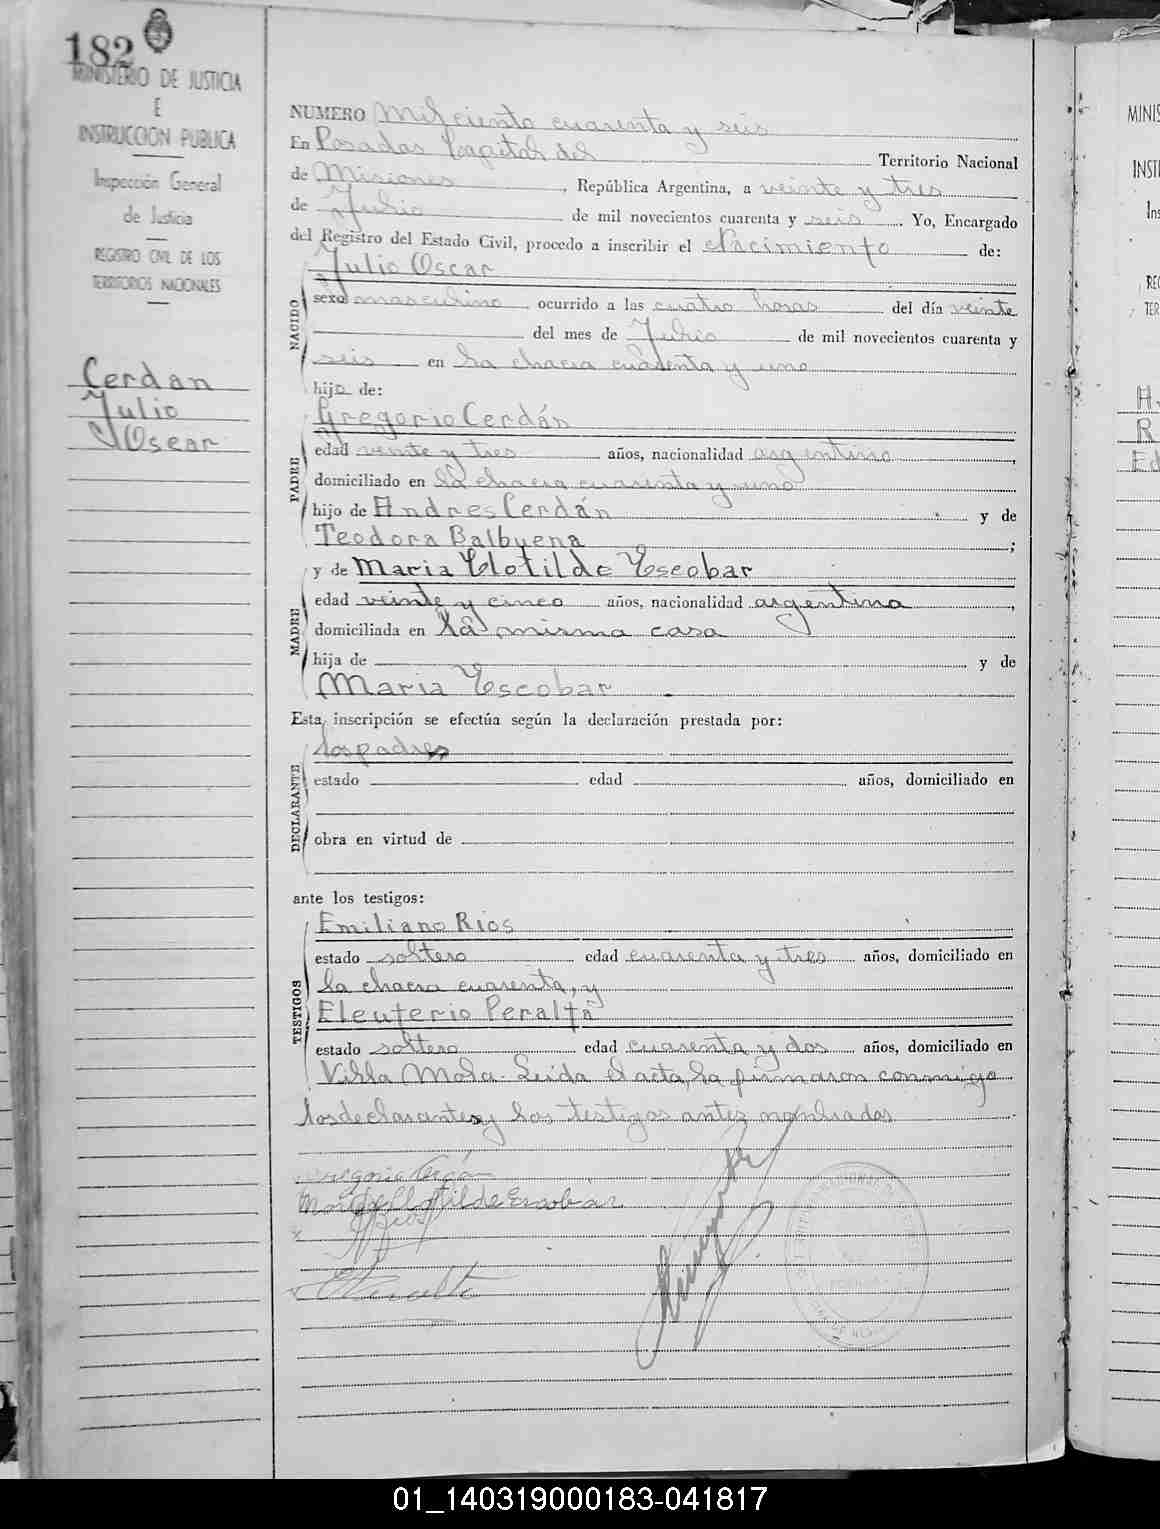 182
MINISTERIO DE JUSTICIA
E
INSTRUCCION PUBLICA
Inspección General
de Justicia
REGISTRO CIVIL DE LOS
TERRITORIOS NACIONALES
Cerdan
Julio
Oscar
NUMERO Mil ciento cuarenta y seis
En Posadas Capital del Territorio Nacional
de Misiones, República Argentina, a veinte y tres
de Julio de mil novecientos cuarenta y seis. Yo, Encargado
del Registro del Estado Civil, procedo a inscribir el Nacimiento de:
Julio Oscar
NACIDO
sexo masculino ocurrido a las cuatro horas del día veinte
del mes de Julio de mil novecientos cuarenta y
seis en la chacra cuarenta y uno
hijo de:
Gregorio Cerdán
PADRE
edad veinte y tres años, nacionalidad argentino,
domiciliado en la chacra cuarenta y uno
hijo de Andres Cerdán y de
Teodora Balbuena;
y de Maria Clotilde Escobar
MADRE
edad veinte y cinco años, nacionalidad argentina,
domiciliada en la misma casa
hija de y de
Maria Escobar
Esta inscripción se efectúa según la declaración prestada por:
los padres
DECLARANTE
estado edad años, domiciliado en
obra en virtud de
ante los testigos:
Emiliano Rios
TESTIGOS
estado soltero edad cuarenta y tres años, domiciliado en
la chacra cuarenta, y
Eleuterio Peralta
estado soltero edad cuarenta y dos años, domiciliado en
Villa Mola. Leida el acta, la firmaron conmigo
los declarantes y los testigos antes nombrados
Gregorio Cerdán
Maria Clotilde Escobar
ERios
EPeralta
MINIS
INSTI
Ins
REG
TER
H.
R
Ed
01_140319000183-041817